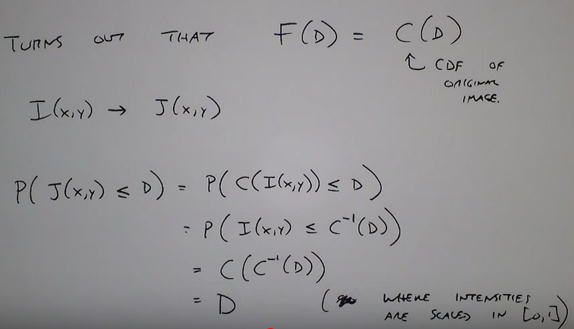 TURNS OUT THAT F(D) = C(D)
↑ CDF OF
ORIGINAL
IMAGE.
I(x,y) → J(x,y)
P( J(x,y) ≤ D) = P( C(I(x,y)) ≤ D)
= P( I(x,y) ≤ C⁻¹(D))
= C(C⁻¹(D))
= D ( WHERE INTENSITIES
ARE SCALED IN [0,1])